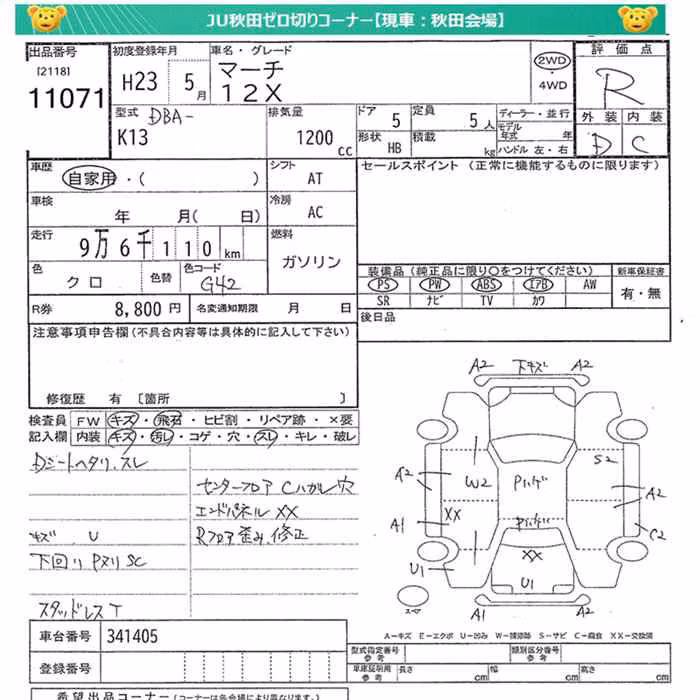 JU秋田ゼロ切りコーナー【現車：秋田会場】
出品番号
[2118]
11071
初度登録年月
H23 5月
車名・グレード
マーチ
12X
2WD
・
4WD
評価点
R
外装 内装
D C
型式 DBA-
K13
排気量
1200 cc
ドア 5
定員 5人
形状 HB
積載 kg
ディーラー・並行
モデル年式 年
ハンドル 左・右
車歴
自家用・( )
シフト
AT
セールスポイント (正常に機能するものに限ります)
車検
年 月( 日)
冷房
AC
走行
9万6千110km
燃料
ガソリン
色
クロ
色替
色コード
G42
装備品 (純正品に限り○をつけてください)
新車保証書
PS PW ABS エアB AW
SR ナビ TV カワ
有・無
R券 8,800円
名変通知期限 月 日
後日品
注意事項申告欄(不具合内容等は具体的に記入して下さい)
修復歴 有 [箇所 ]
検査員 FW キズ・飛石・ヒビ割・リペア跡・×要
記入欄 内装 キズ・汚レ・コゲ・穴・スレ・キレ・破レ
Dシートヘタリ、スレ
センターフロア Cハガレ穴
エンドパネル XX
キズ、U
Rフロア歪み、修正
下回リ Pヌリ SC
スタッドレスT
A2 下キズ A2
S2
A2 W2 Pハゲ A2
XX
A1 Pハゲ C2
XX
U1 U1
スペア
A1 A2
A－キズ E－エクボ U－凹み W－補修跡 S－サビ C－腐食 XX－交換済
車台番号 341405
登録番号
型式指定番号
参考
類別区分番号
参考
車庫証明用
参考
長さ cm 幅 cm 高さ cm
希望出品コーナー (コーナーは各会場により異なります。)